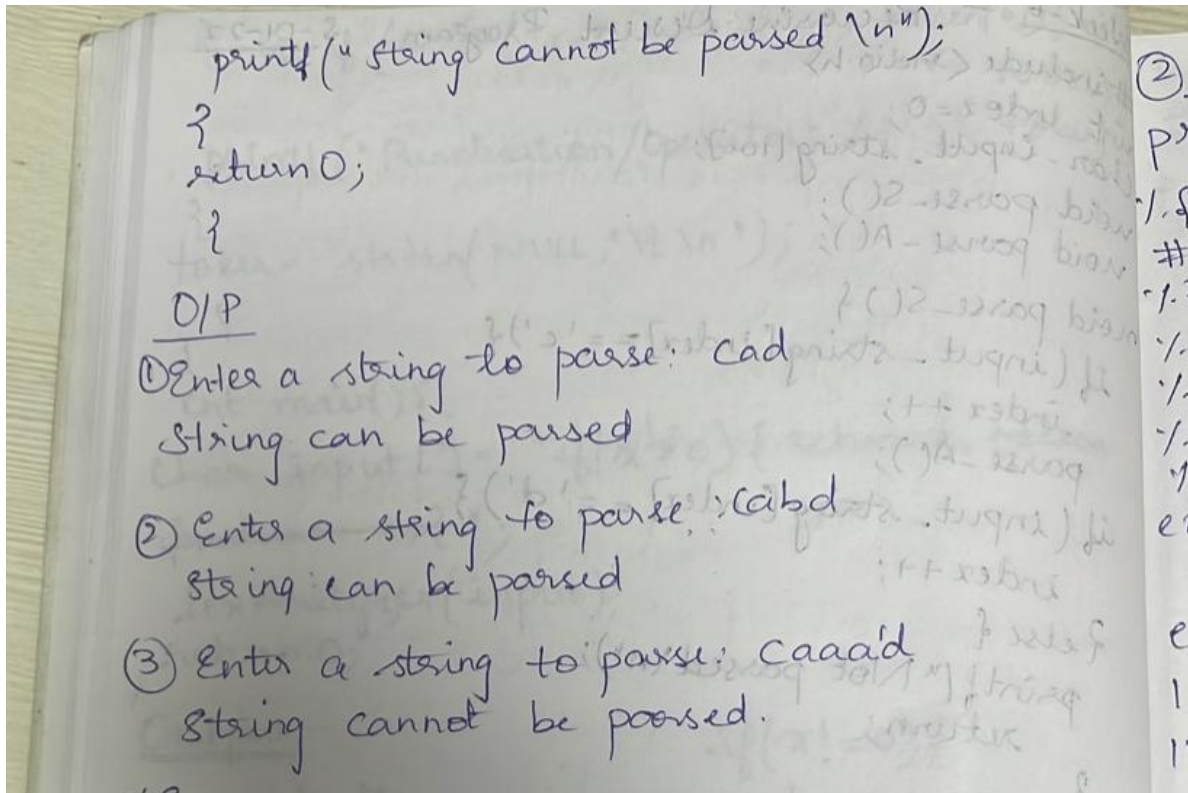 printf (" String cannot be parsed \n");
}
return 0;
}
O/P
① Enter a string to parse: cad
String can be parsed
② Enter a string to parse: cabd
string can be parsed
③ Enter a string to parse: caaad
String cannot be poorsed.
②.
#